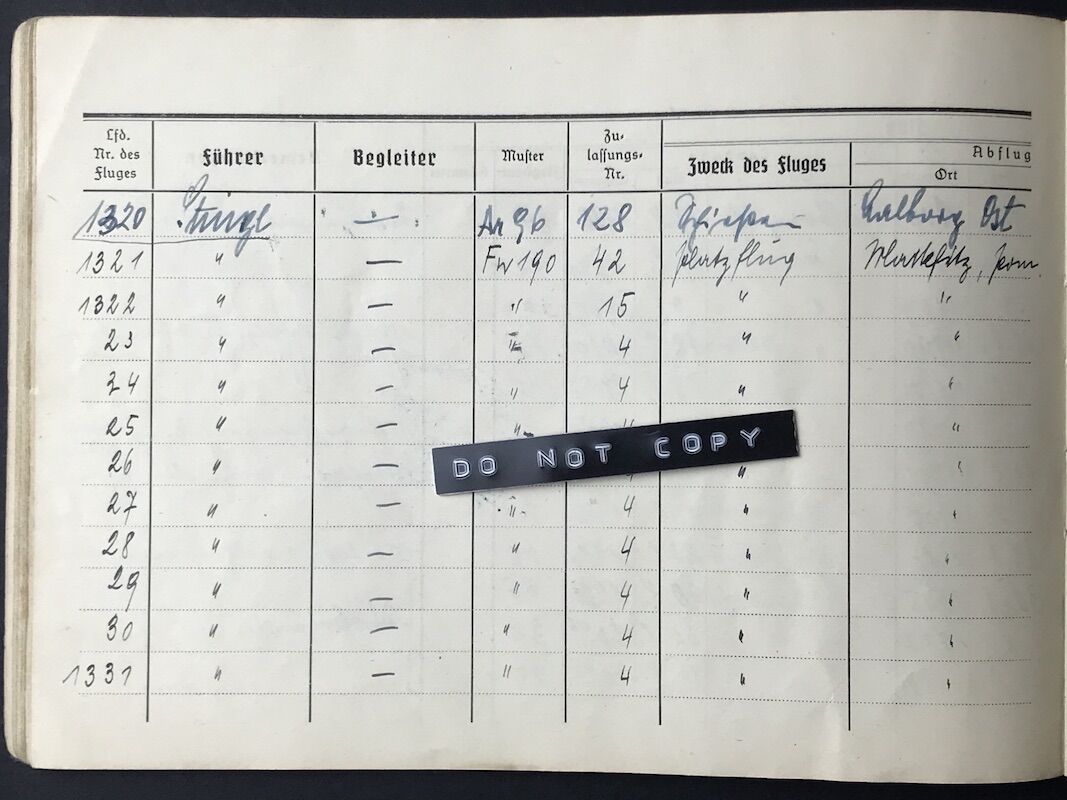 Lfd. Nr. des Fluges Führer Begleiter Muster Zu- lassungs- Nr. Zweck des Fluges Abflug Ort
1320 Stingl — Ar 96 128 Schießen Aalborg Ost
1321 " — Fw 190 42 Platzflug pom.
1322 " — " 15 " "
23 " — " 4 " "
24 " — " 4 " "
25 " — " "
26 " — " "
27 " — " 4 " "
28 " — " 4 " "
29 " — " 4 " "
30 " — " 4 " "
1331 " — " 4 " "
DO NOT COPY